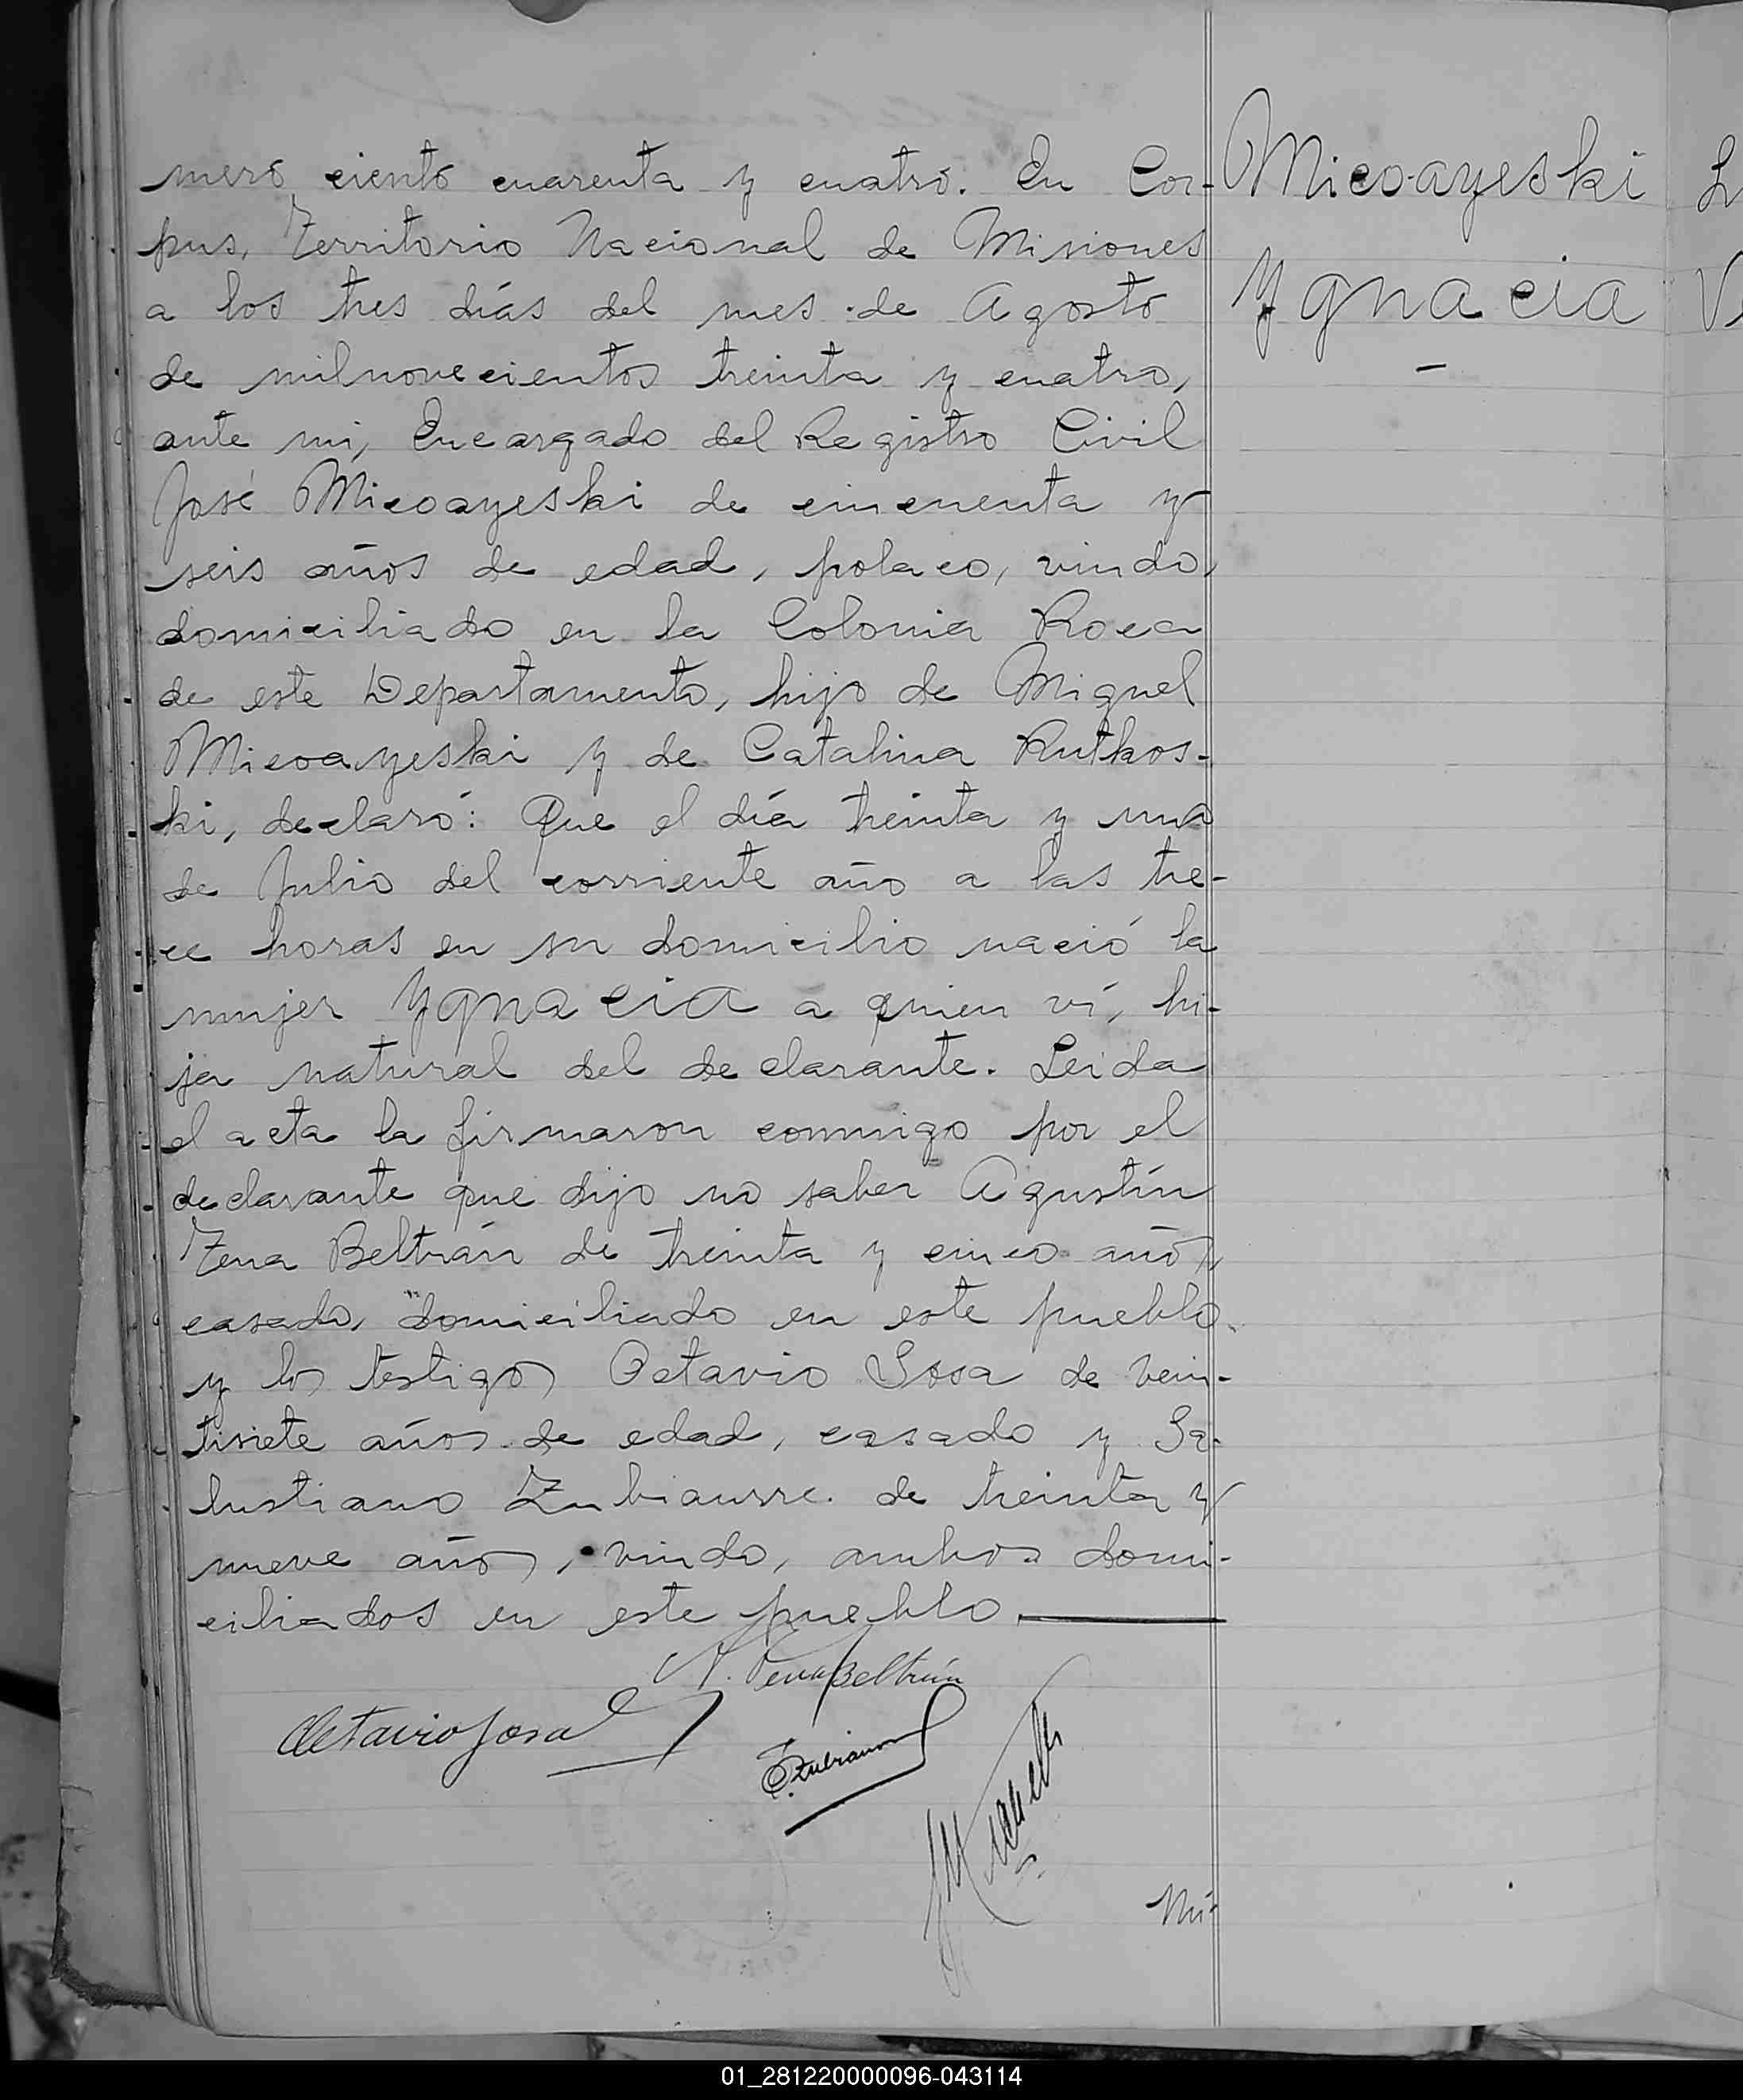 mero ciento cuarenta y cuatro. En Cor-
pus, Territorio Nacional de Misiones
a los tres días del mes de Agosto
de milnovecientos treinta y cuatro,
ante mi, Encargado del Registro Civil
José Micoayeski de cincuenta y
seis años de edad, polaco, viudo,
domiciliado en la Colonia Roca
de este Departamento, hijo de Miguel
Micoayeski y de Catalina Rutkos-
ki, declaró: Que el día treinta y uno
de Julio del corriente año a las tre-
ce horas en su domicilio nació la
mujer Ygnacia a quien ví, hi-
ja natural del declarante. Leida
el acta la firmaron conmigo por el
declarante que dijo no saber Agustín
Zena Beltrán de treinta y cinco años,
casado, domiciliado en este pueblo
y los testigos Octavio Sosa de vein-
tisiete años de edad, casado y Sa-
lustiano Zubiaurre de treinta y
nueve años, viudo, ambos domi-
ciliados en este pueblo.
A. Zena Beltrán
Octavio Sosa
Nú-
Micoayeski
Ygnacia
01_281220000096-043114